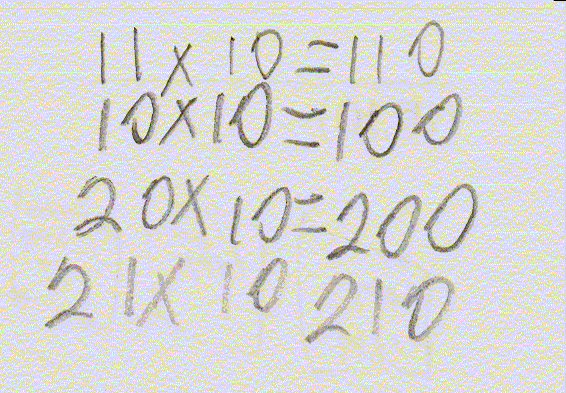 11 x 10 = 110
10 x 10 = 100
20 x 10 = 200
21 x 10 210